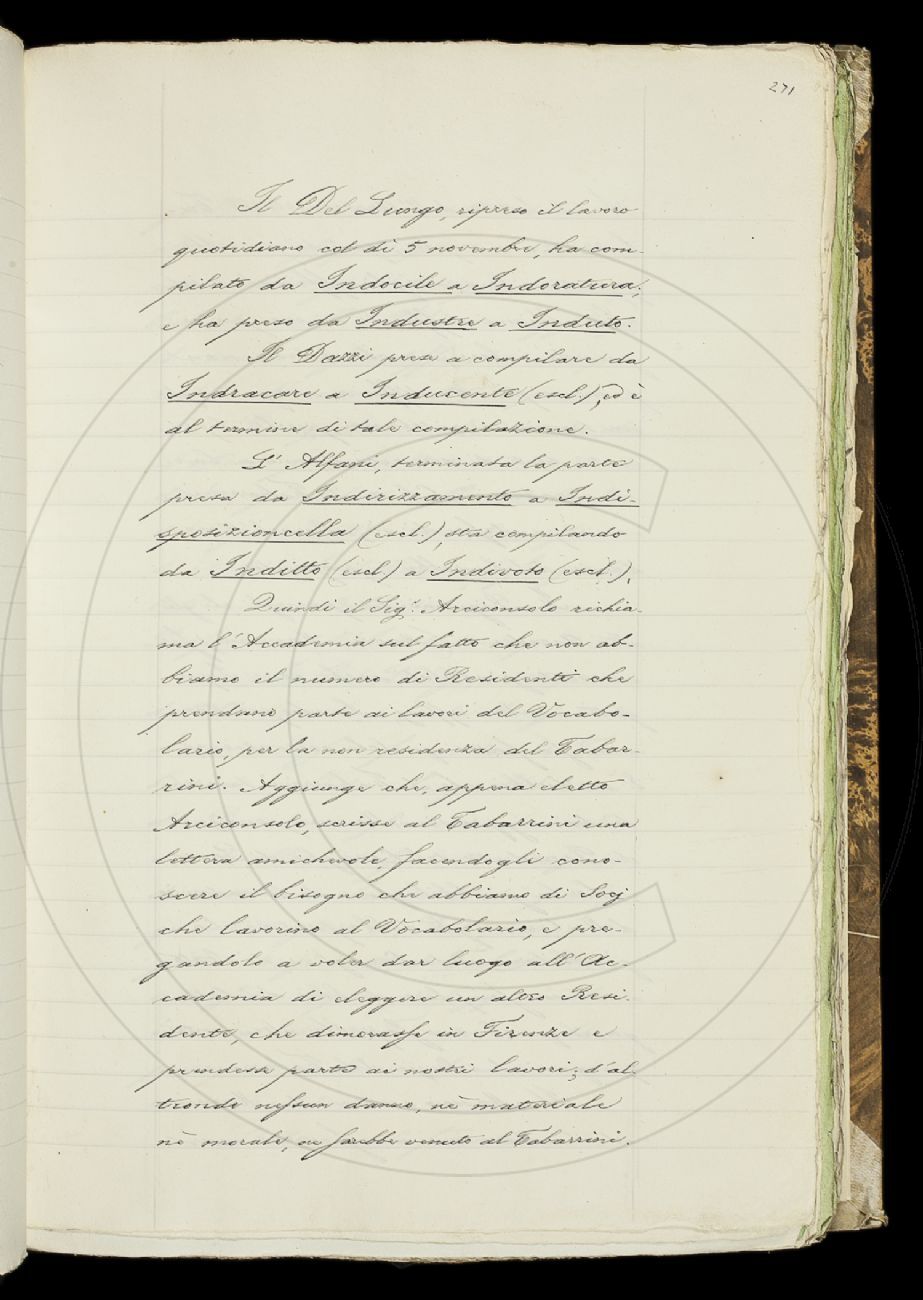 271
Il Del Lungo, ripreso il lavoro
quotidiano col dì 5 novembre, ha com-
pilato da Indocile a Indoratura;
e ha preso da Industre a Induto.
Il Dazzi prese a compilare da
Indracare a Inducente (escl.), ed è
al termine di tale compilazione.
L' Alfani, terminata la parte
presa da Indirizzamento a Indi-
sposizioncella (escl.), sta compilando
da Inditto (escl.) a Indivoto (escl.).
Quindi il Sig.r Arciconsolo richia-
ma l'Accademia sul fatto che non ab-
biamo il numero di Residenti che
prendano parte ai lavori del Vocabo-
lario, per la non residenza del Tabar-
rini. Aggiunge che, appena eletto
Arciconsolo, scrisse al Tabarrini una
lettera amichevole, facendogli cono-
scere il bisogno che abbiamo di Socj
che lavorino al Vocabolario, e pre-
gandolo a voler dar luogo all'Ac-
cademia di eleggere un altro Resi-
dente, che dimorasse in Firenze e
prendesse parte ai nostri lavori; d'al-
tronde nessun danno, nè materiale
nè morale, ne sarebbe venuto al Tabarrini.